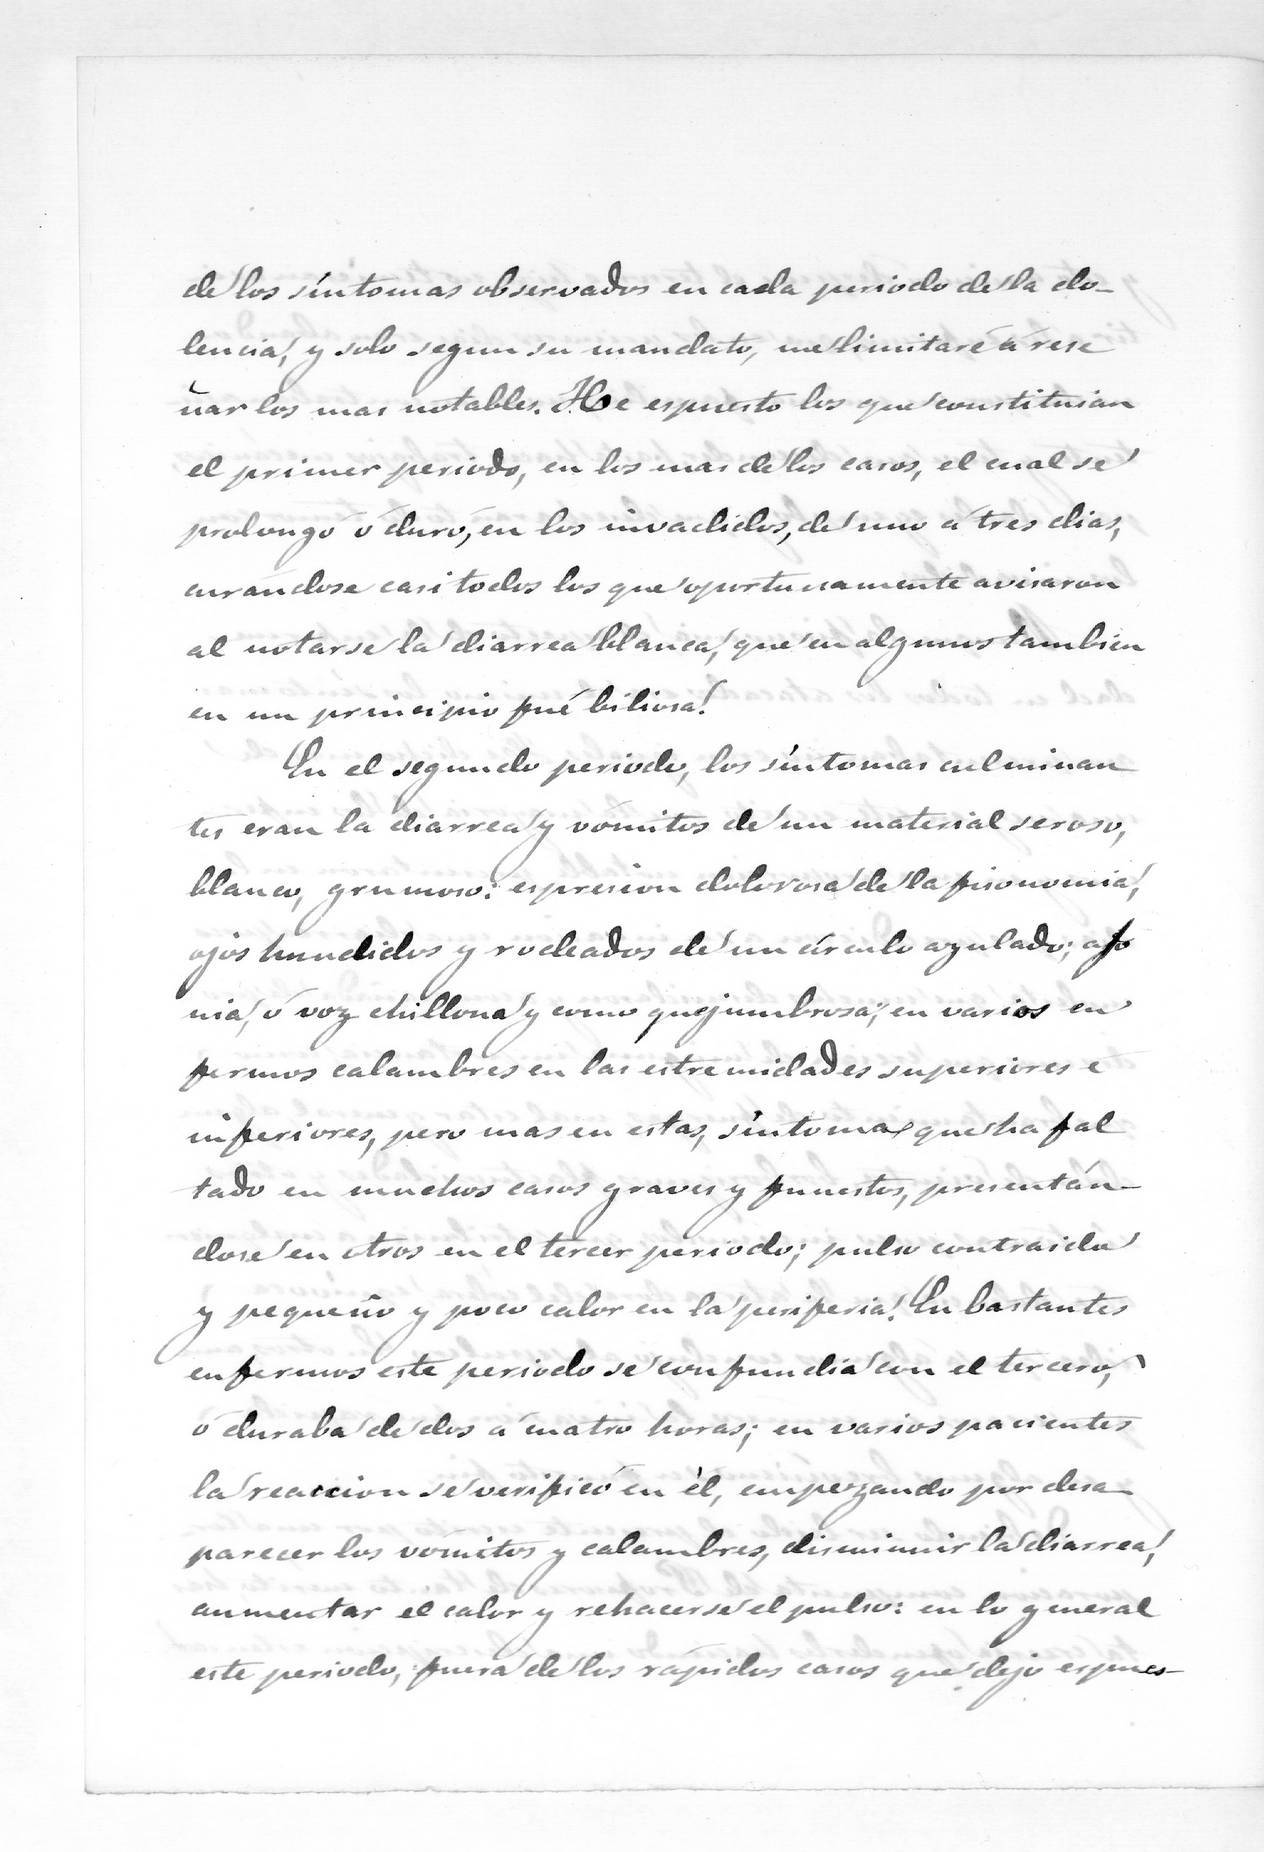 de los síntomas observados en cada periodo de la do-
lencia, y solo segun su mandato, me limitaré á rese
ñar los mas notables. He espuesto los que constituian
el primer periodo, en los mas de los casos, el cual se
prolongó ó duró, en los invadidos, de uno á tres dias,
curándose casi todos los que oportunamente avisaron
al notarse la diarrea blanca, que en algunos tambien
en un principio fué biliosa.
En el segundo periodo, los síntomas culminan
tes eran la diarrea y vómitos de un material seroso,
blanco, grumoso: espresion dolorosa de la fisonomia,
ojos hundidos y rodeados de un círculo azulado; afo
nia, ó voz chillona y como quejumbrosa; en varios en
fermos calambres en las estremidades superiores e
inferiores, pero mas en estas, síntoma que ha fal
tado en muchos casos graves y funestos, presentán-
dose en otros en el tercer periodo; pulso contraido
y pequeño y poco calor en la periferia. En bastantes
enfermos este periodo se confundia con el tercero,
ó duraba de dos á cuatro horas; en varios pacientes
la reaccion se verificó en él, empezando por desa
parecer los vómitos y calambres, disminuir la diarrea,
aumentar el calor y rehacerse el pulso: en lo general
este periodo, fuera de los rápidos casos que dejo espues-